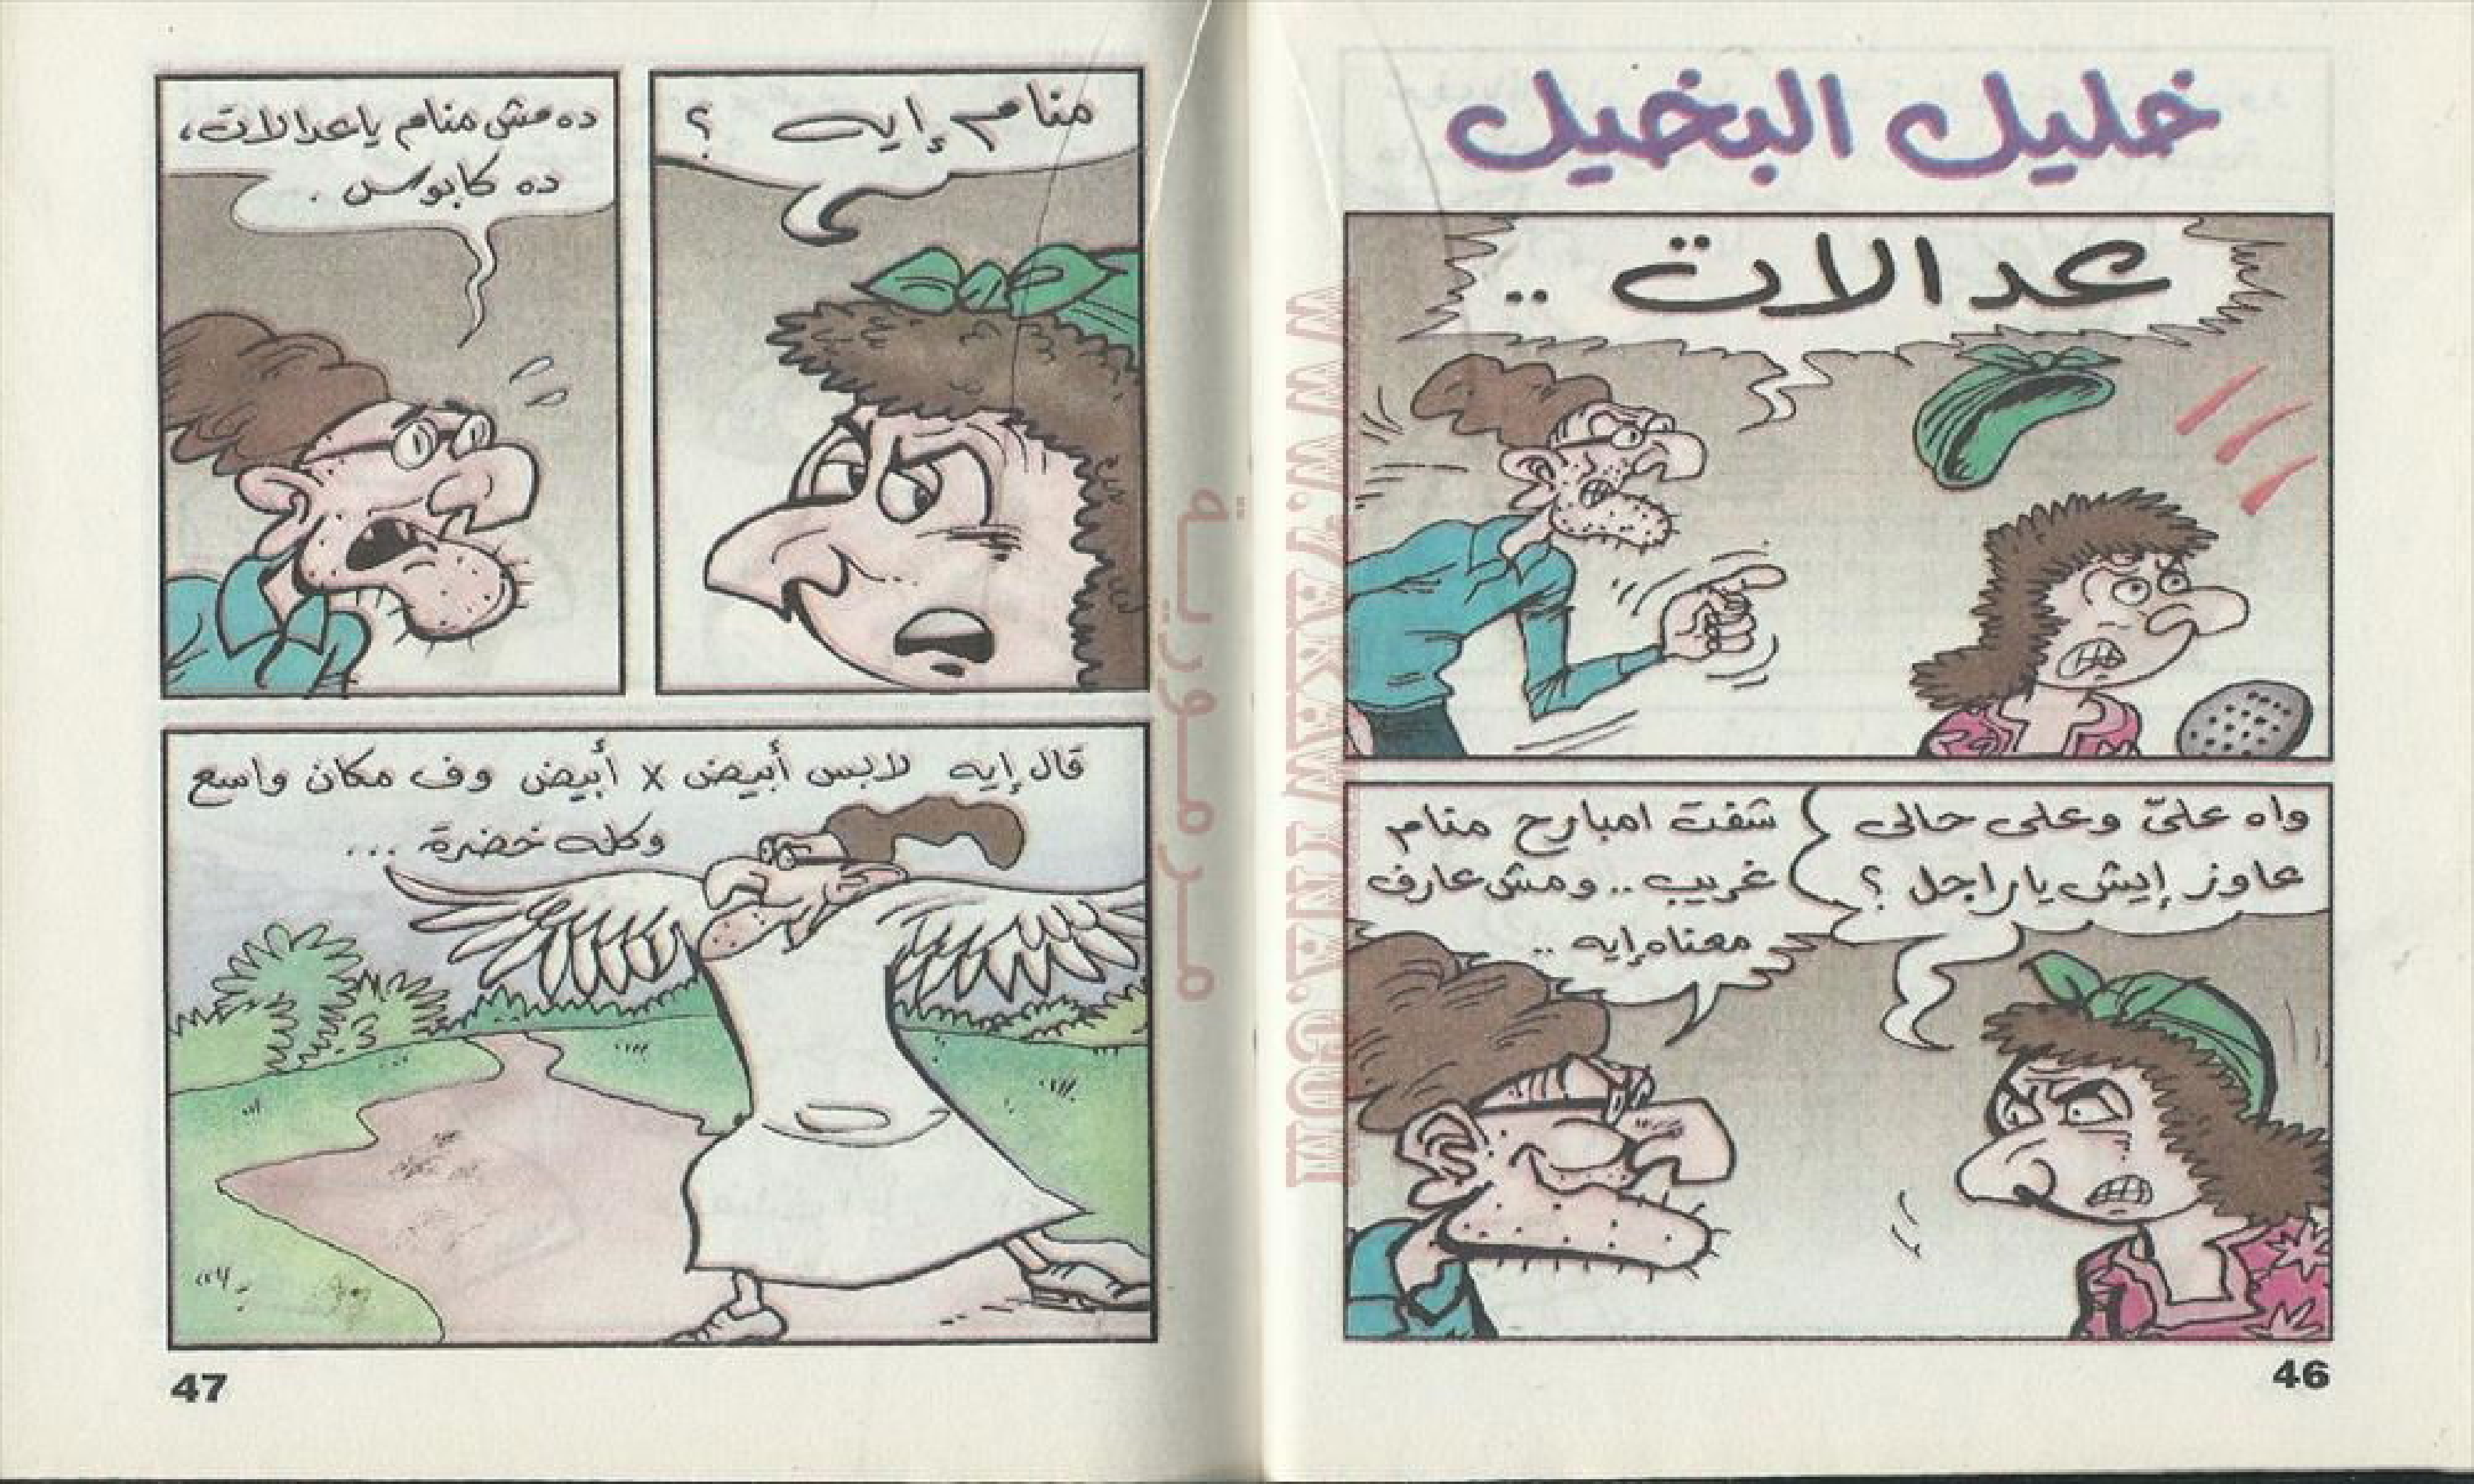 خليل البخيل
عدالات ..
واه عليّ وعلى حالى
عاوز إيش ياراجل ؟
شفت امبارح منام
غريب .. ومش عارف
معناه إيه ..
46
منام إيه ؟
ده مش منام ياعدالات،
ده كابوس .
قال إيه لابس أبيض x أبيض وف مكان واسع
وكله خضرة ...
47
WWW.ARABCOMICS.NET